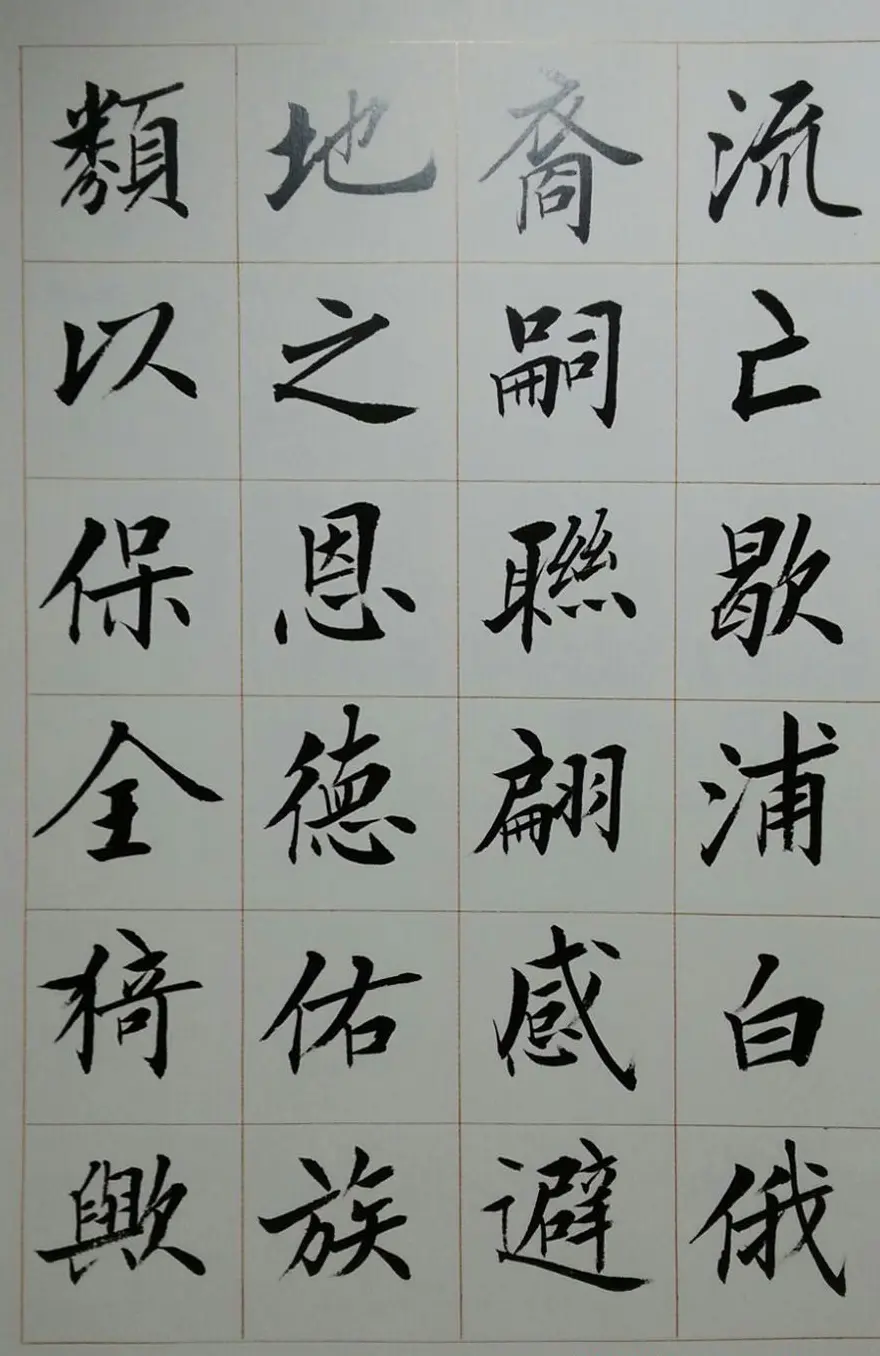 流亡歇浦白俄
裔嗣聯翩感避
地之恩德佑族
類以保全猗歟